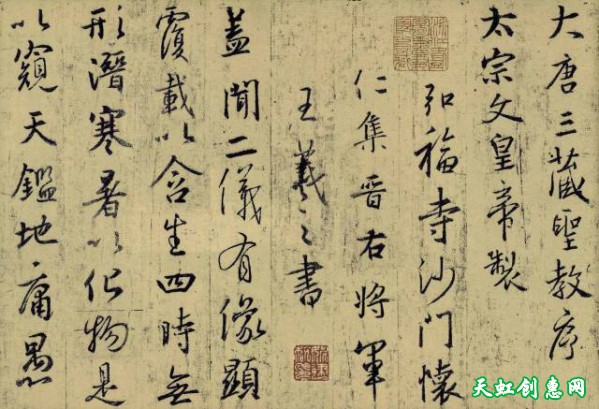 大唐三藏聖教序
太宗文皇帝製
弘福寺沙門懷
仁集晉右將軍
王羲之書
蓋聞二儀有像顯
覆載以含生四時無
形潛寒暑以化物是
以窺天鑑地庸愚
天虹创惠网